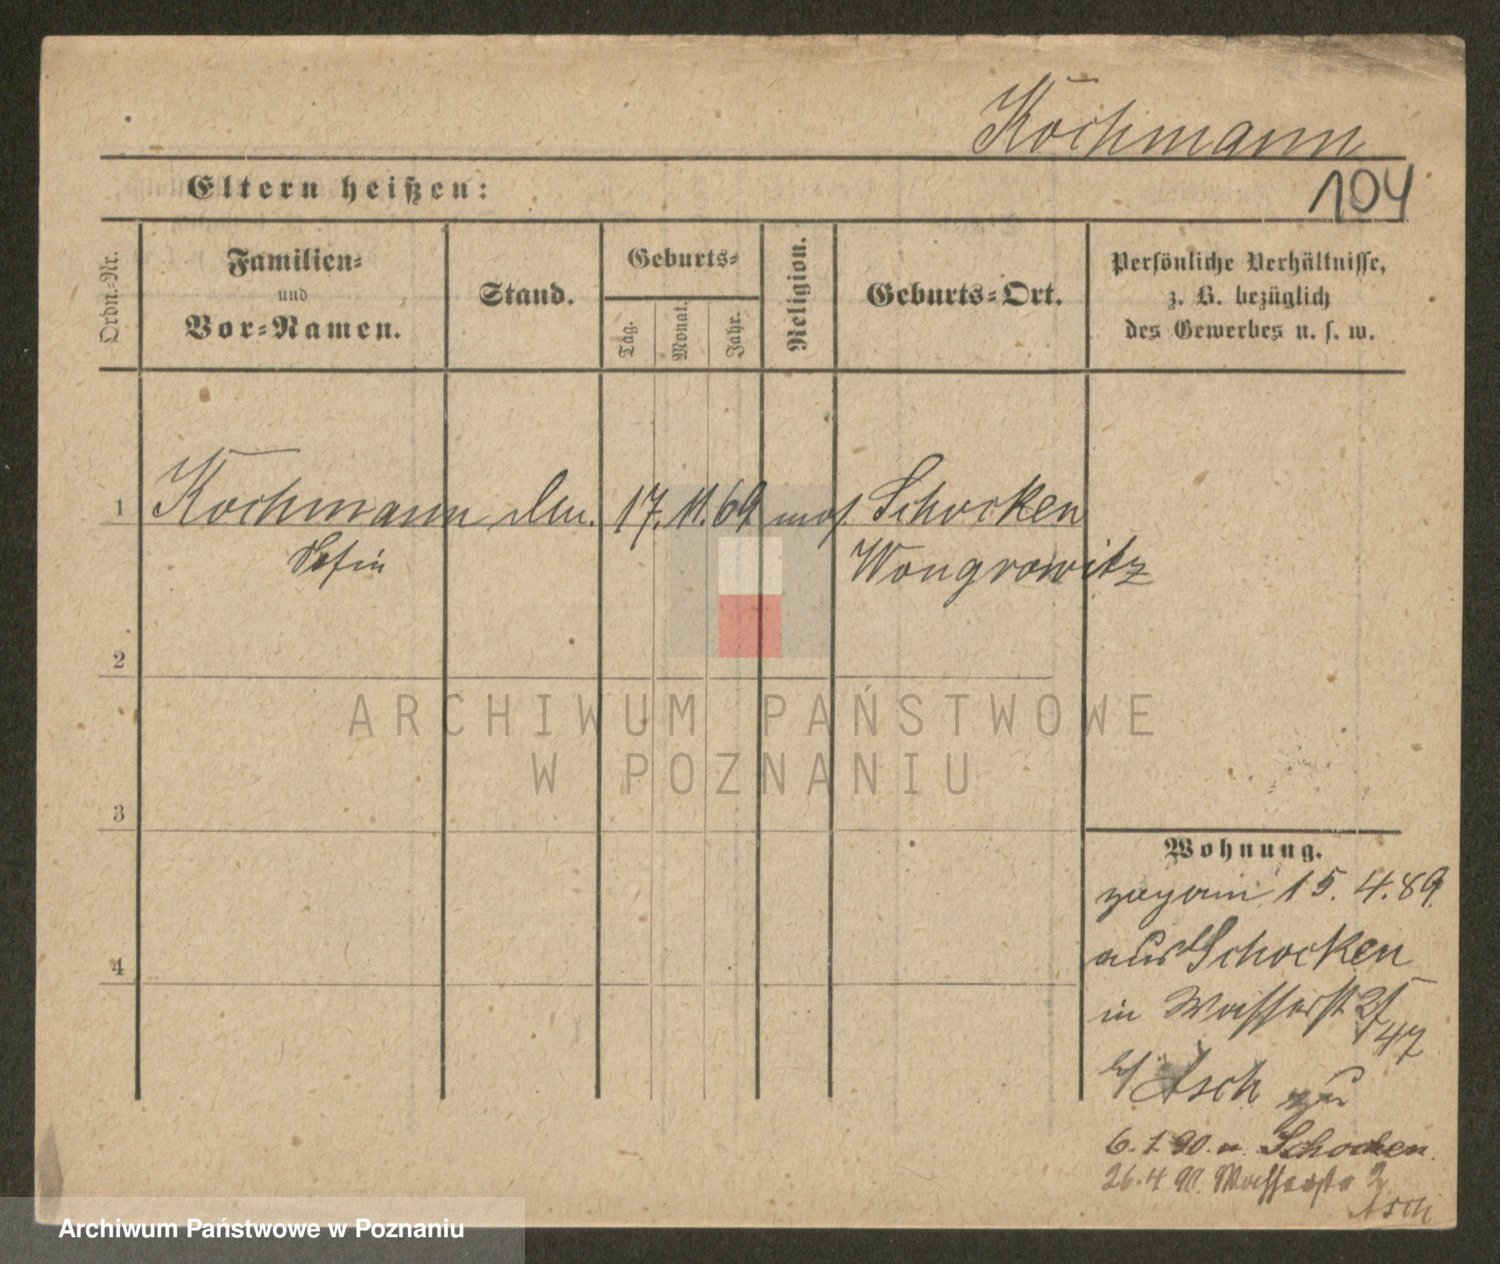 Kochmann
Eltern heißen:
104
Ordn.-Nr.
Familien-
und
Vor-Namen.
Stand.
Geburts-
Tag.
Monat.
Jahr.
Religion.
Geburts-Ort.
Persönliche Verhältnisse,
z. B. bezüglich
des Gewerbes u. s. w.
1 Kochmann 17. 11. 69 mos. Schocken
Wongrowitz
2
ARCHIWUM PAŃSTWOWE
W POZNANIU
3
Wohnung.
4
15. 4. 89.
aus Schocken
in Wasserst 2/
47
b/ Asch zu
6. 1. 90. n. Schocken.
26. 4. 90. Wasserstr 2
Asch
Archiwum Państwowe w Poznaniu